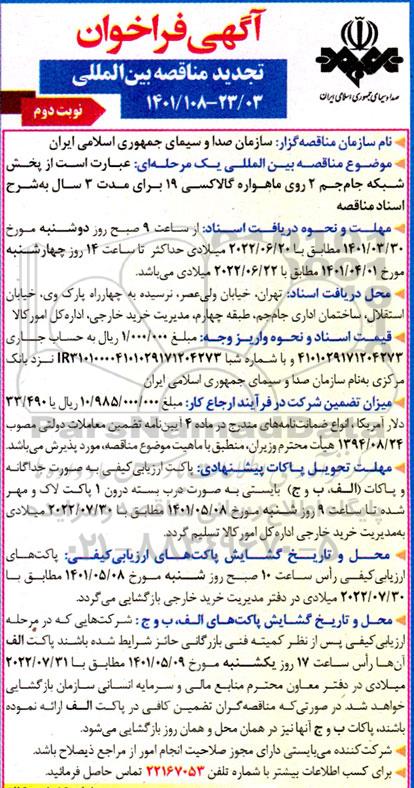 آگهی فراخوان
تجدید مناقصه بین المللی
۱۴۰۱/۱۰۸-۲۳/۰۳
نوبت دوم
صدا و سیمای جمهوری اسلامی ایران
نام سازمان مناقصه‌گزار: سازمان صدا و سیمای جمهوری اسلامی ایران
موضوع مناقصه بین المللی یک مرحله‌ای: عبارت است از پخش
شبکه جام‌جم ۲ روی ماهواره گالاکسی ۱۹ برای مدت ۳ سال به‌شرح
اسناد مناقصه
مهلت و نحوه دریافت اسناد: از ساعت ۹ صبح روز دوشنبه مورخ
۱۴۰۱/۰۳/۳۰ مطابق با ۲۰۲۲/۰۶/۲۰ میلادی حداکثر تا ساعت ۱۴ روز چهارشنبه
مورخ ۱۴۰۱/۰۴/۰۱ مطابق با ۲۰۲۲/۰۶/۲۲ میلادی می‌باشد.
محل دریافت اسناد: تهران، خیابان ولی‌عصر، نرسیده به چهارراه پارک وی، خیابان
استقلال، ساختمان اداری جام‌جم، طبقه چهارم، مدیریت خرید خارجی، اداره کل امور کالا
قیمت اسناد و نحوه واریز وجه: مبلغ ۱/۰۰۰/۰۰۰ ریال به حساب جاری
۴۱۰۱۰۲۹۱۷۱۲۰۴۲۷۳ و با شماره شبا IR۳۱۰۱۰۰۰۰۴۱۰۱۰۲۹۱۷۱۲۰۴۲۷۳ نزد بانک
مرکزی به‌نام سازمان صدا و سیمای جمهوری اسلامی ایران
میزان تضمین شرکت در فرآیند ارجاع کار: مبلغ ۱۰/۹۸۵/۰۰۰/۰۰۰ ریال یا ۳۳/۴۹۰
دلار آمریکا، انواع ضمانت‌نامه‌های مندرج در ماده ۴ آیین‌نامه تضمین معاملات دولتی مصوب
۱۳۹۴/۰۸/۲۴ هیأت محترم وزیران، منطبق با ماهیت موضوع مناقصه، مورد پذیرش می‌باشد.
مهلت تحویل پاکات پیشنهادی: پاکت ارزیابی‌کیفی به صورت جداگانه
و پاکات (الف، ب و ج) بایستی به صورت درب بسته درون ۱ پاکت لاک و مهر
شده تا ساعت ۹ روز شنبه مورخ ۱۴۰۱/۰۵/۰۸ مطابق با ۲۰۲۲/۰۷/۳۰ میلادی
به‌مدیریت خرید خارجی اداره کل امور کالا تسلیم گردد.
محل و تاریخ گشایش پاکت‌های ارزیابی‌کیفی: پاکت‌های
ارزیابی‌کیفی رأس ساعت ۱۰ صبح روز شنبه مورخ ۱۴۰۱/۰۵/۰۸ مطابق با
۲۰۲۲/۰۷/۳۰ میلادی در دفتر مدیریت خرید خارجی بازگشایی می‌گردد.
محل و تاریخ گشایش پاکت‌های الف، ب و ج: شرکت‌هایی که در مرحله
ارزیابی‌کیفی پس از نظر کمیته فنی بازرگانی حائز شرایط شده باشند پاکت الف
آن‌ها رأس ساعت ۱۷ روز یکشنبه مورخ ۱۴۰۱/۰۵/۰۹ مطابق با ۲۰۲۲/۰۷/۳۱
میلادی در دفتر معاون محترم منابع مالی و سرمایه انسانی سازمان بازگشایی
خواهد شد. در صورتی‌که مناقصه‌گران تضمین کافی در پاکت الف ارائه نموده
باشند، پاکات ب و ج آنها نیز در همان محل و همان روز بازگشایی می‌شود.
شرکت‌کننده می‌بایستی دارای مجوز صلاحیت انجام امور از مراجع ذیصلاح باشد.
برای کسب اطلاعات بیشتر با شماره تلفن ۲۲۱۶۷۰۵۳ تماس حاصل فرمائید.